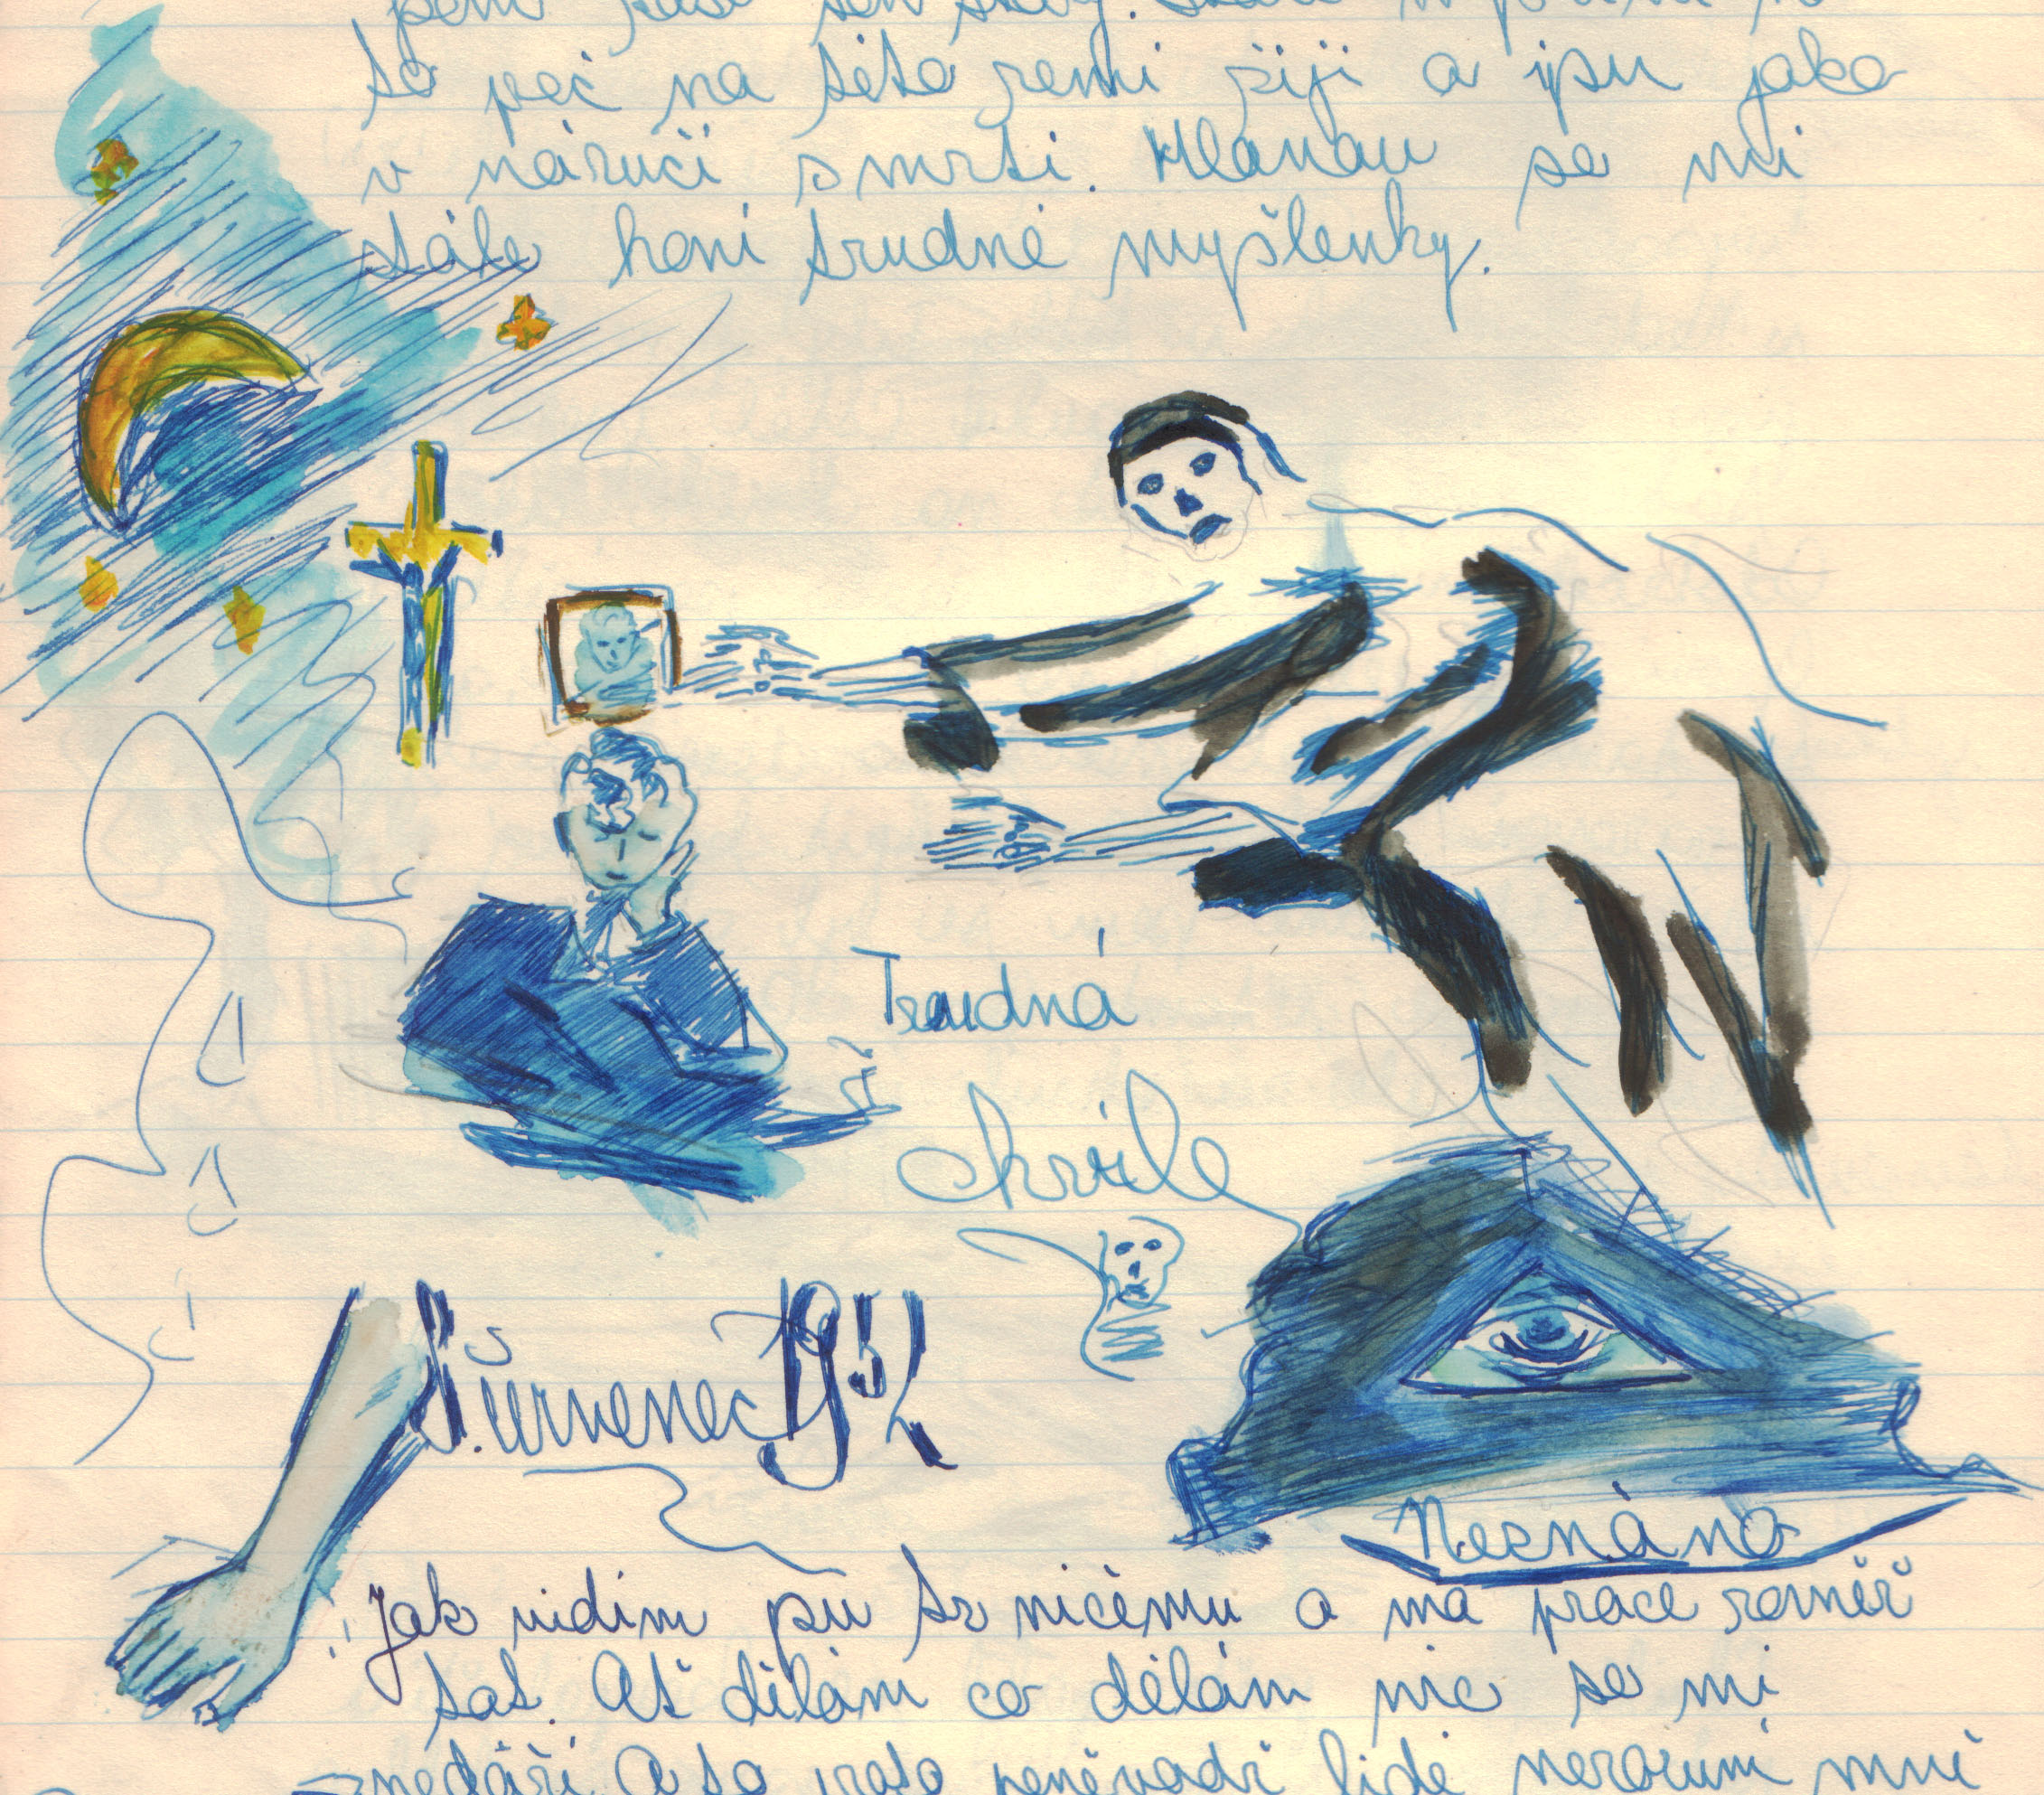 to peč na této zemi žiji a jsu jako
v náručí smrti. Hlavau se mi
stále honí trudné myšlenky.
Trudná
chvíle
Červenec 1952
Neznáno
Jak vidím jsu k ničemu a má práce rovněž
tak. Ať dělám co dělám nic se mi
nedáří. A to proto poněvadž lidé nerozumí mně